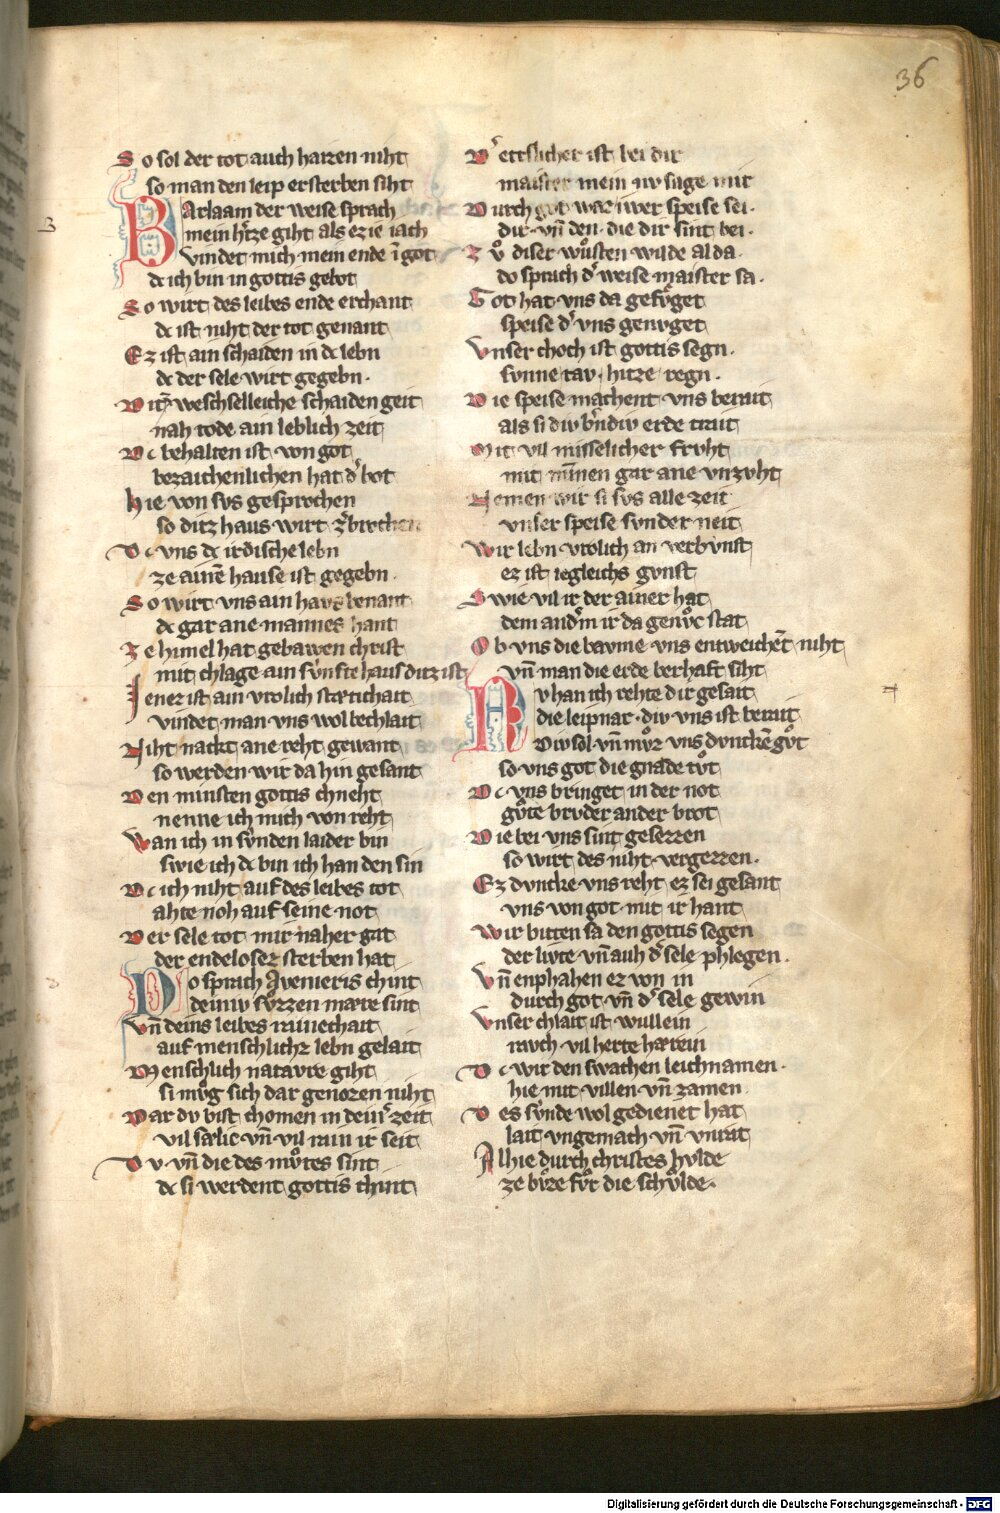 36
So sol der tot auch haizen niht
so man den leip ersterben siht
Barlaam der weise sprach
mein h'tze giht als ez ie iach
vindet mich mein ende ī got
dc ich bin in gottis gebot
So wirt des leibes ende erchant
dc ist niht der tot genant
Ez ist ain schaiden in dc lebn
dc der sele wirt gegebn.
weschselleiche schaiden geit
nah tode ain leblich zeit
Dc behalten ist von got
bezaichenlichen hat d' bot
hie von svs gesprochen
so ditz haus wirt
Dc vns dc irdische lebn
ze ainē hause ist gegebn.
So wirt vns ain havs benant
dc gar ane mannes hant
Ze himel hat gebawen christ
mit chlage ain sůnfte haus ditz ist
Jenez ist ain vrolich stætichait
vindet man vns wol bechlait
Niht nackt ane reht gewant
so werden wir da hin gesant
Den minsten gottis chneht
nenne ich mich von reht
Wan ich in svnden laider bin
swie ich dc bin ich han den sin
Dc ich niht auf des leibes tot
ahte noh auf seine not
Der sele tot mir naher gat
der endeloser sterben hat
Do sprach Avenieris chint
deiniv svzzen mære sint
Vn̄ deins leibes rainechait
auf menschlichz lebn gelait
Menschlich natavre giht
si mvg sich dar genozen niht
Dar dv bist chomen in zeit
vil sælic vn̄ vil rain ir seit
Dv vn̄ die des mvtes sint
dc si werdent gottis chint
ist bei dir
maister mein nv sage mir
Durch got waz iwer speise sei.
dir vn̄ den die dir sint bei.
Zv diser wůsten wilde al da.
do sprach d' weise maister sa.
Got hat vns da gefvget
speise d' vns genvget
Vnser choch ist gottis segn.
svnne tav. hitze regn.
Die speise machent vns berait
als si div erde trait
Mit vil misselicher frvht
mit mīnen gar ane vnzvht
Nemen wir si svs alle zeit
vnser speise svnder neit
Wir lebn vrolich an verbvnst
ez ist iegleichs gvnst
Swie vil ir der ainer hat
dem and'm ir da genvc stat
Ob vns die bavme vns niht
vn̄ man die erde berhaft siht
Nv han ich rehte dir gesait
die leipnar. div vns ist berait
Div sol vn̄ mvz vns gvt
so vns got die gnade tvt
Dc vns bringet in der not
gvte brvder ander brot
Die bei vns sint gesezzen
so wirt des niht vergezzen.
Ez dvncke vns reht ez sei gesant
vns von got mit ir hant
Wir bitten sa den gottis segen
der livte vn̄ auh d' sele phlegen.
Vn̄ enphahen ez von in
durch got vn̄ d' sele gewin
Vnser chlait ist wullein
ravch vil herte hærein
Dc wir den swachen leichnamen.
hie mit villen vn̄ zamen
Des svnde wol gedienet hat
lait vngemach vn̄ vnrat
Alhie durch christes hvlde
ze bvze fvr die schvlde.
Digitalisierung gefördert durch die Deutsche Forschungsgemeinschaft - DFG